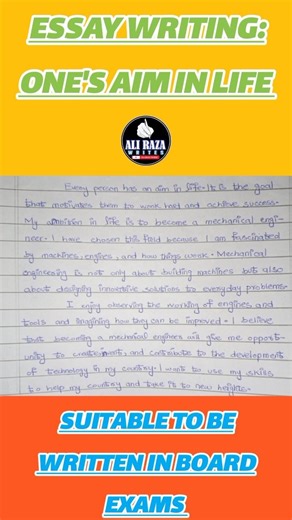 ESSAY WRITING:
ONE'S AIM IN LIFE
ALI RAZA
WRITES
Every person has an aim in life. It is the goal
that motivates them to work hard and achieve success.
My ambition in life is to become a mechanical engi-
neer. I have chosen this field because I am fascinated
by machines, engines, and how things work. Mechanical
engineering is not only about building machines but also
about designing innovative solutions to everyday problems.
I enjoy observing the working of engines and
tools and imagining how they can be improved. I believe
that becoming a mechanical engineer will give me opport-
unity to create, and contribute to the development
of technology in my country. I want to use my skills
to help my country and take it to new heights.
SUITABLE TO BE
WRITTEN IN BOARD
EXAMS